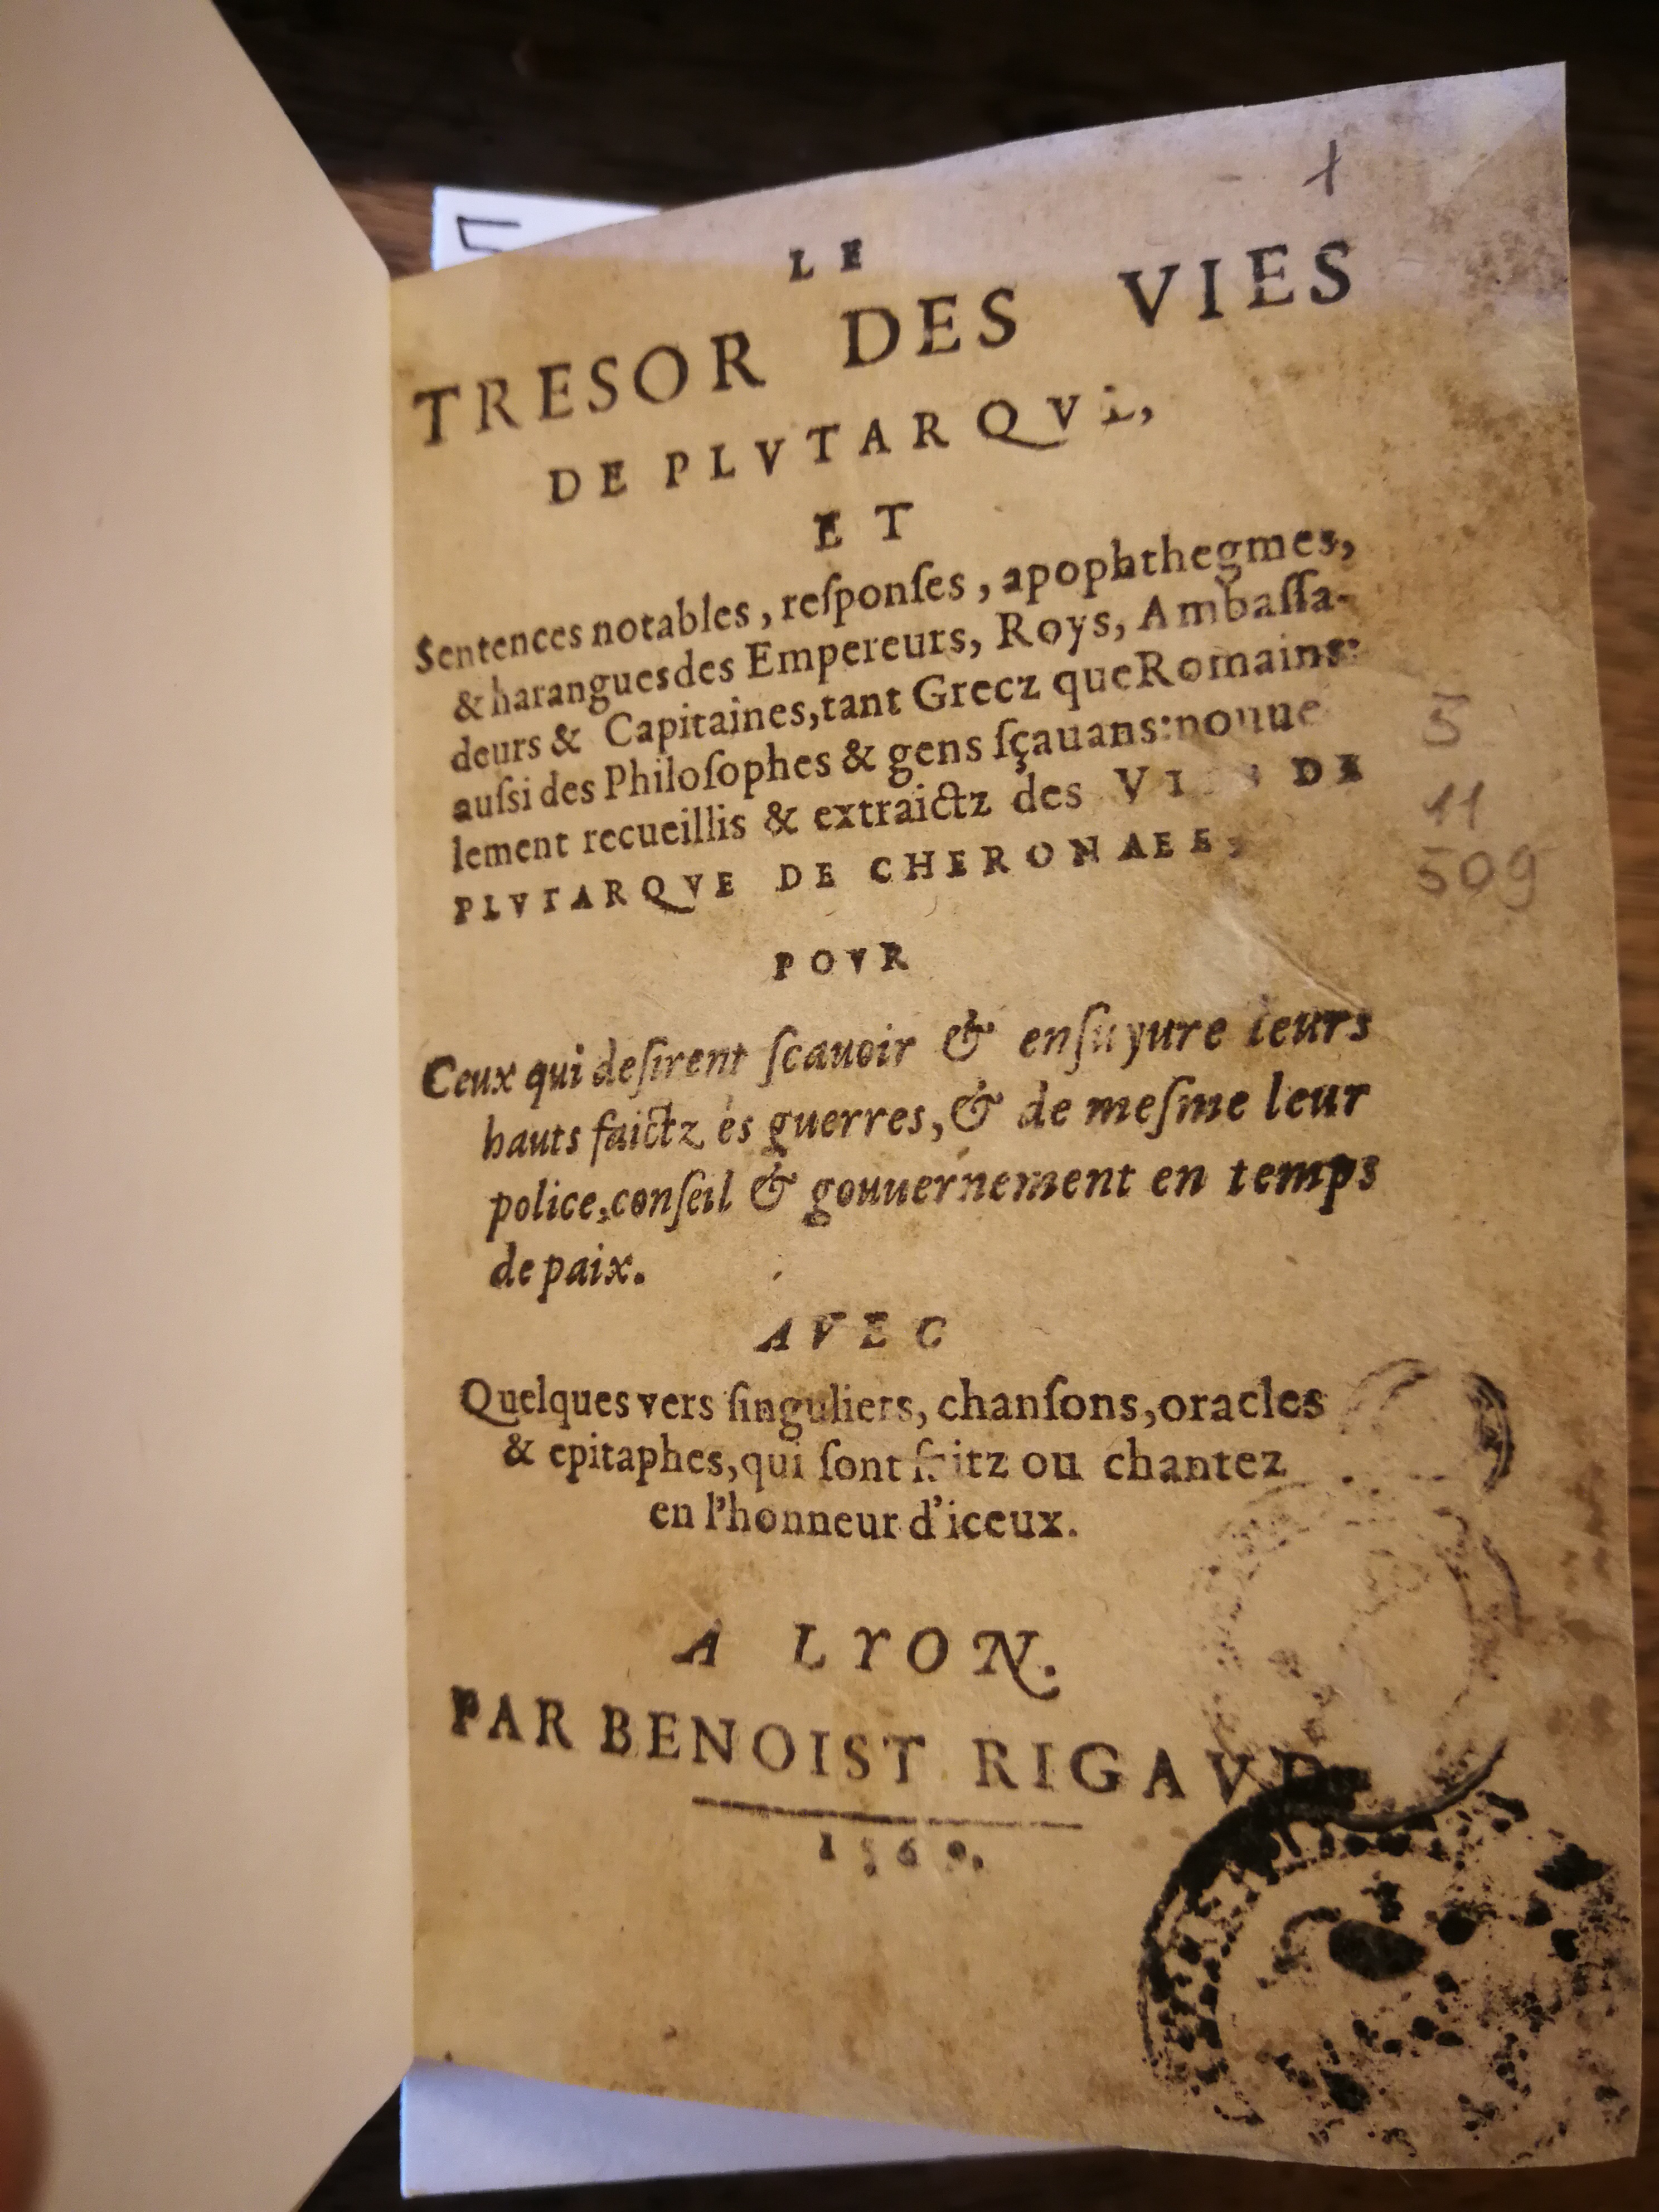 1
LE
TRESOR DES VIES
DE PLVTARQVE,
ET
Sentences notables, reſponſes, apophthegmes,
& harangues des Empereurs, Roys, Ambaſſa-
deurs & Capitaines, tant Grecz que Romains:
auſsi des Philoſophes & gens ſçauans: nouue
lement recueillis & extraictz des VIES DE
PLVTARQVE DE CHERONAEE,
5
11
509
POVR
Ceux qui deſirent ſcauoir & enſuyure leurs
hauts faictz és guerres, & de meſme leur
police, conſeil & gouuernement en temps
de paix.
AVEC
Quelques vers ſinguliers, chanſons, oracles
& epitaphes, qui ſont faitz ou chantez
en l'honneur d'iceux.
A LYON.
PAR BENOIST RIGAVD.